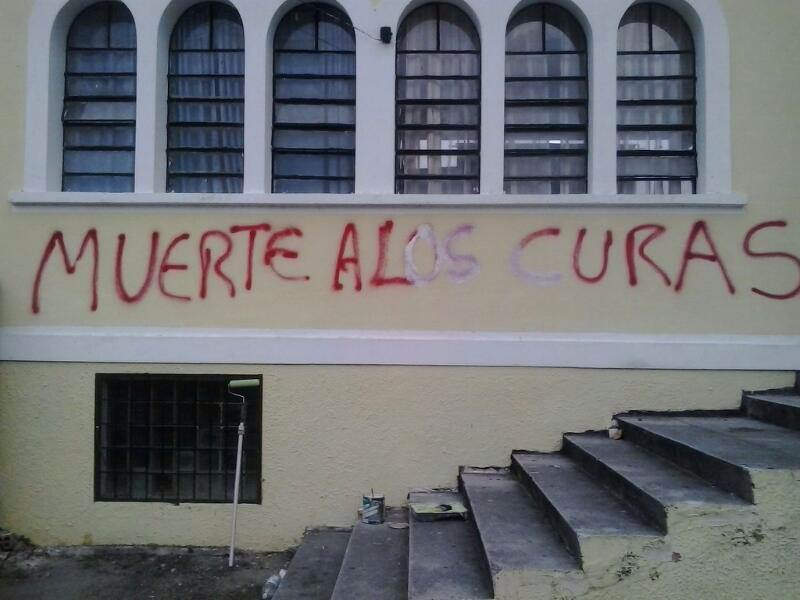 MUERTE A LOS CURAS